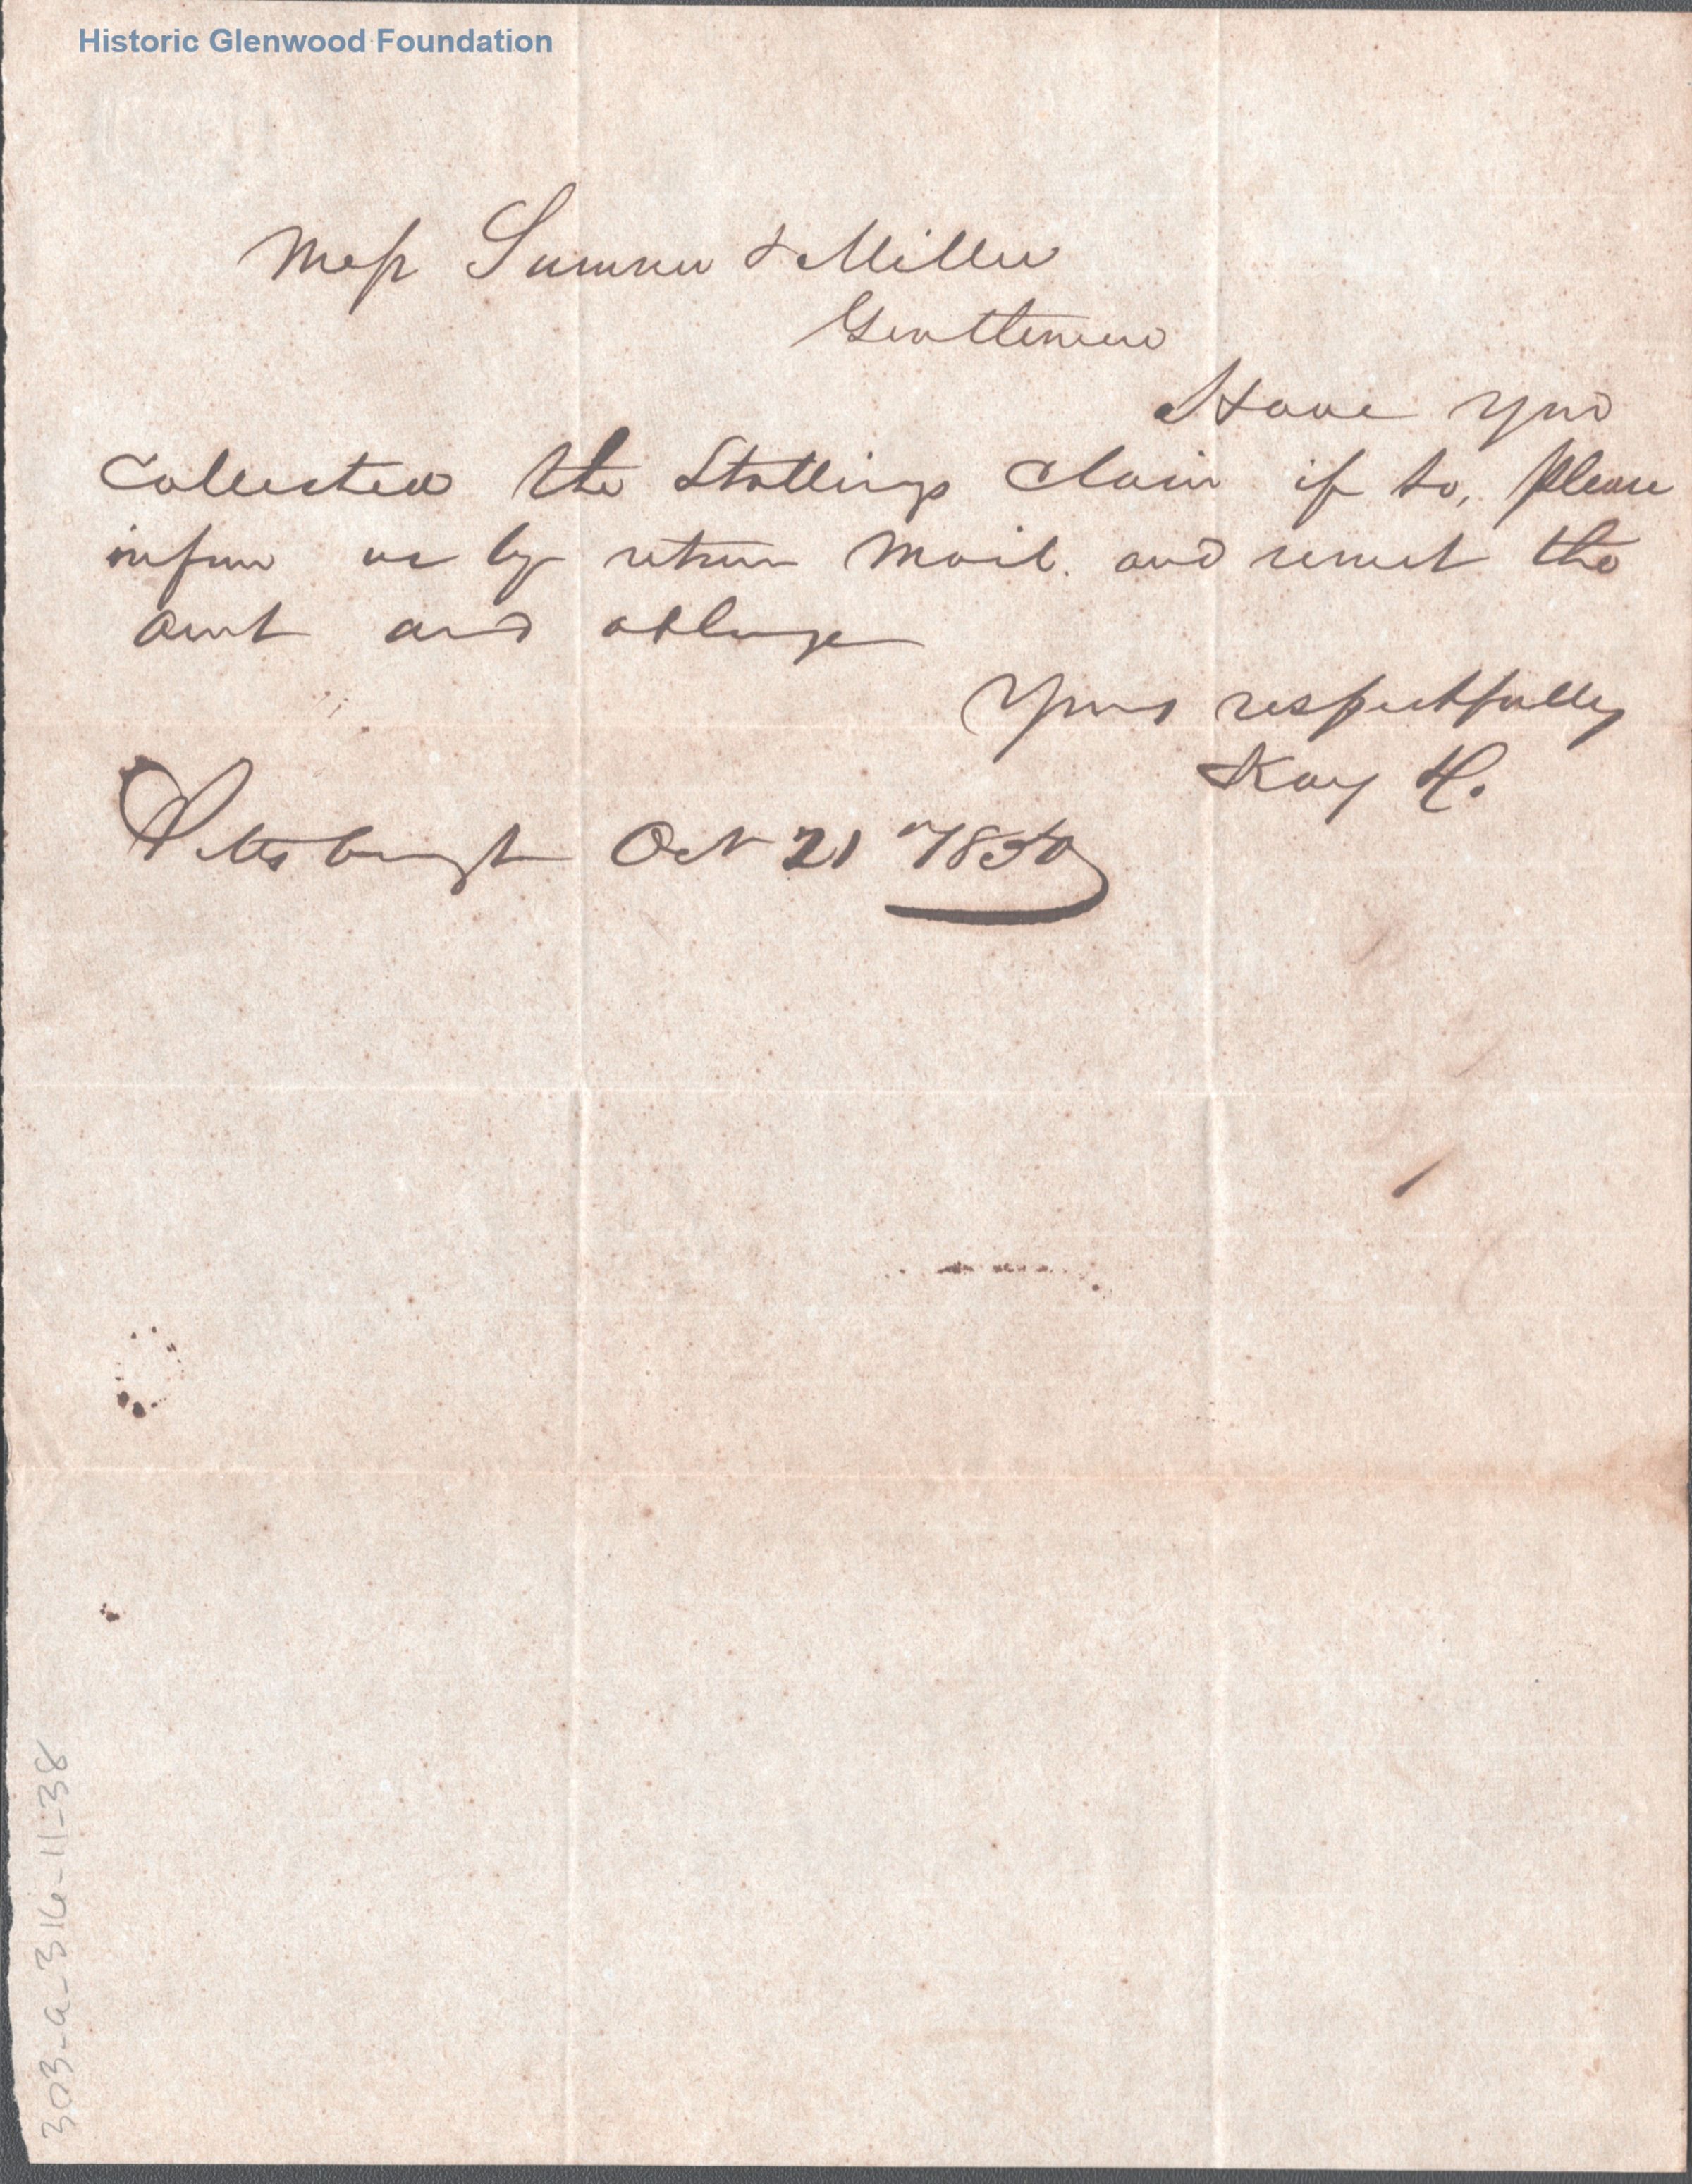 Historic Glenwood Foundation
Mess Sumner & Miller
Gentlemen
Have you
Collected the Stallings Claim if so, Please
inform us by return Mail. and remit the
amt and oblige
Yours respectfully
Kay
Pittsburgh Oct 21 1850
303-a-316-11-38